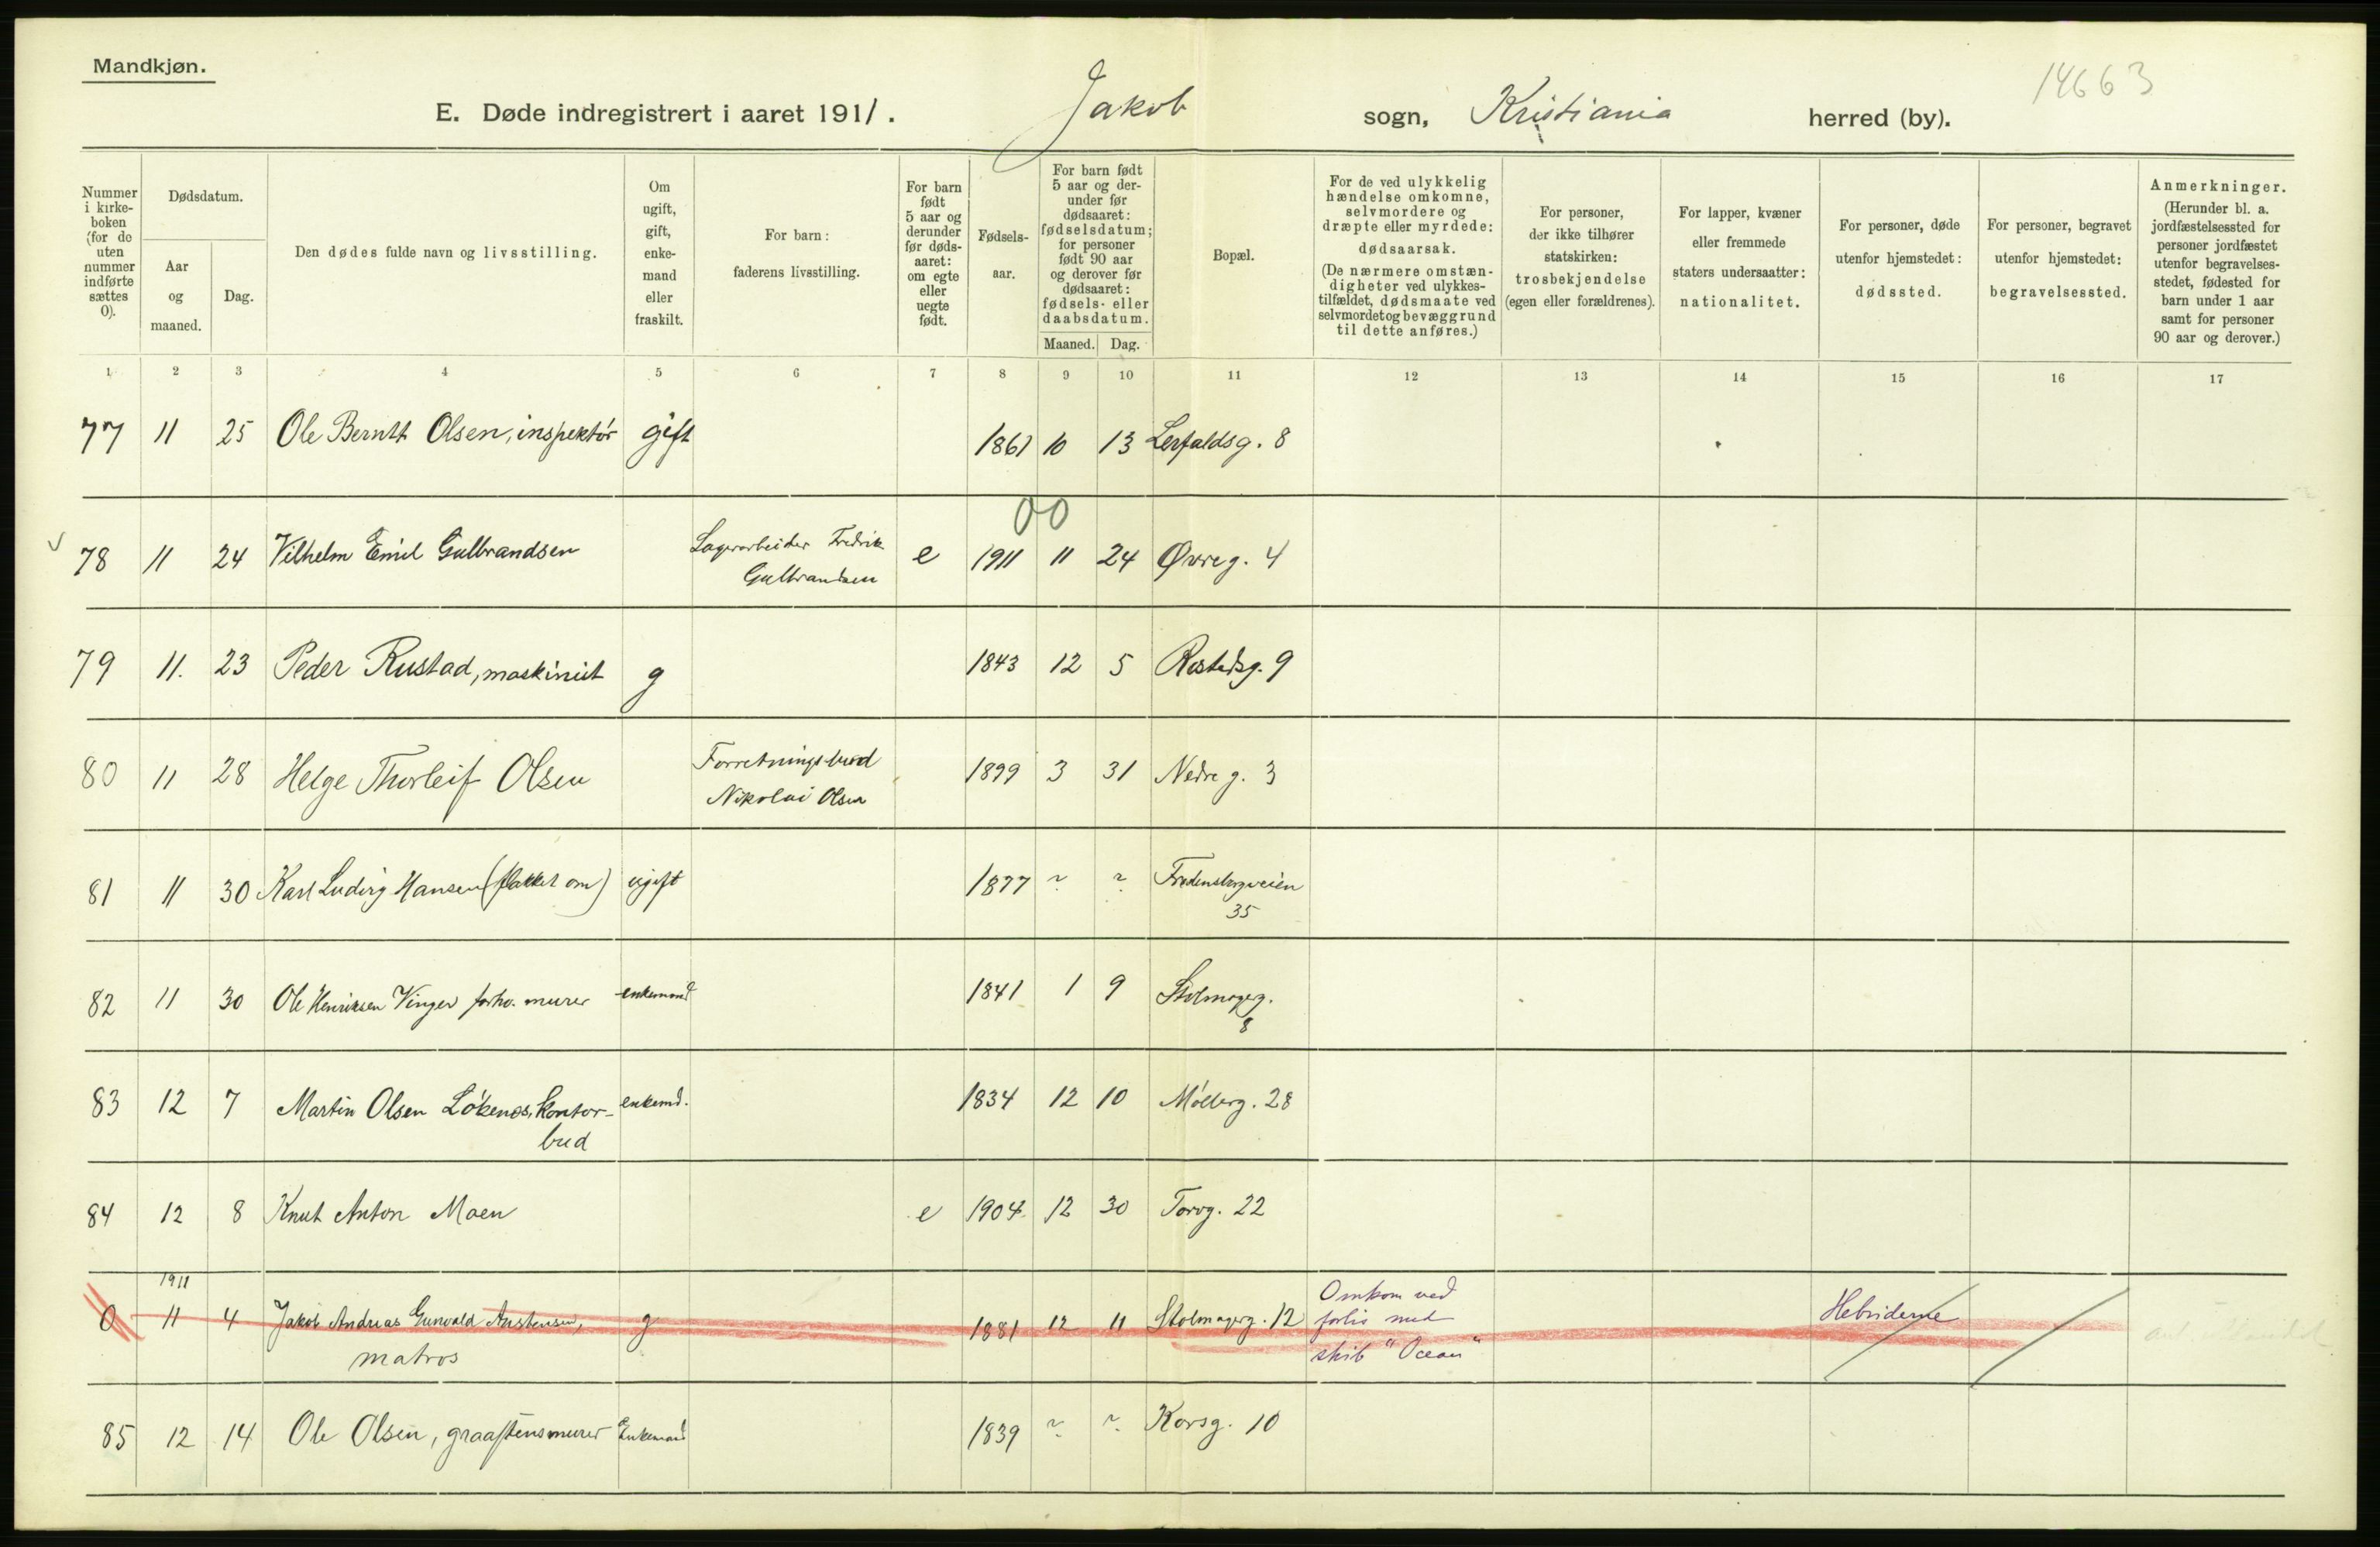 Mandkjøn.
14663
E. Døde indregistrert i aaret 1911. Jakob sogn, Kristiania herred (by).
Nummer i kirke- boken (for de uten nummer indførte sættes 0).
Dødsdatum.
Aar og maaned.
Dag.
Den dødes fulde navn og livsstilling.
Om ugift, gift, enke- mand eller fraskilt.
For barn: faderens livsstilling.
For barn født 5 aar og derunder før døds- aaret: om egte eller uegte født.
Fødsels- aar.
For barn født 5 aar og der- under før dødsaaret: fødselsdatum; for personer født 90 aar og derover før dødsaaret: fødsels- eller daabsdatum.
Maaned. Dag.
Bopæl.
For de ved ulykkelig hændelse omkomne, selvmordere og dræpte eller myrdede: dødsaarsak. (De nærmere omstæn- digheter ved ulykkes- tilfældet, dødsmaate ved selvmordet og bevæggrund til dette anføres.)
For personer, der ikke tilhører statskirken: trosbekjendelse (egen eller forældrenes).
For lapper, kvæner eller fremmede staters undersaatter: nationalitet.
For personer, døde utenfor hjemstedet: dødssted.
For personer, begravet utenfor hjemstedet: begravelsessted.
Anmerkninger. (Herunder bl. a. jordfæstelsessted for personer jordfæstet utenfor begravelses- stedet, fødested for barn under 1 aar samt for personer 90 aar og derover.)
1 2 3 4 5 6 7 8 9 10 11 12 13 14 15 16 17
77 11 25 Ole Berntt Olsen, inspektör gift 1861 10 13 Lerfaldsg. 8
00
78 11 24 Vilhelm Emil Gulbrandsen Lagerarbeider Fredrik e 1911 11 24 Øvreg. 4
Gulbrandsen
79 11. 23 Peder Rustad, maskinist g 1843 12 5 Rostedsg. 9
80 11 28 Helge Thorleif Olsen Forretningsbud 1899 3 31 Nedre g. 3
Nikolai Olsen
81 11 30 Karl Ludvig Hansen (flakket om) ugift 1877 ? ? Fredensborgveien
35
82 11 30 Ole Henriksen Vinger forhv. murer enkemand 1841 1 9 Stolmagerg.
8
83 12 7 Martin Olsen Lökenæs, kontor- enkemd. 1834 12 10 Möllerg. 28
bud
84 12 8 Knut Anton Moen e 1904 12 30 Torvg. 22
1911
0 11 4 Jakob Andreas Gunvald Austensen, g 1881 12 11 Stolmagerg. 12 Omkom ved Hebriderne
matros forlis med
skib "Ocean"
85 12 14 Ole Olsen, graastensmurer Enkemand 1839 ? ? Korsg. 10